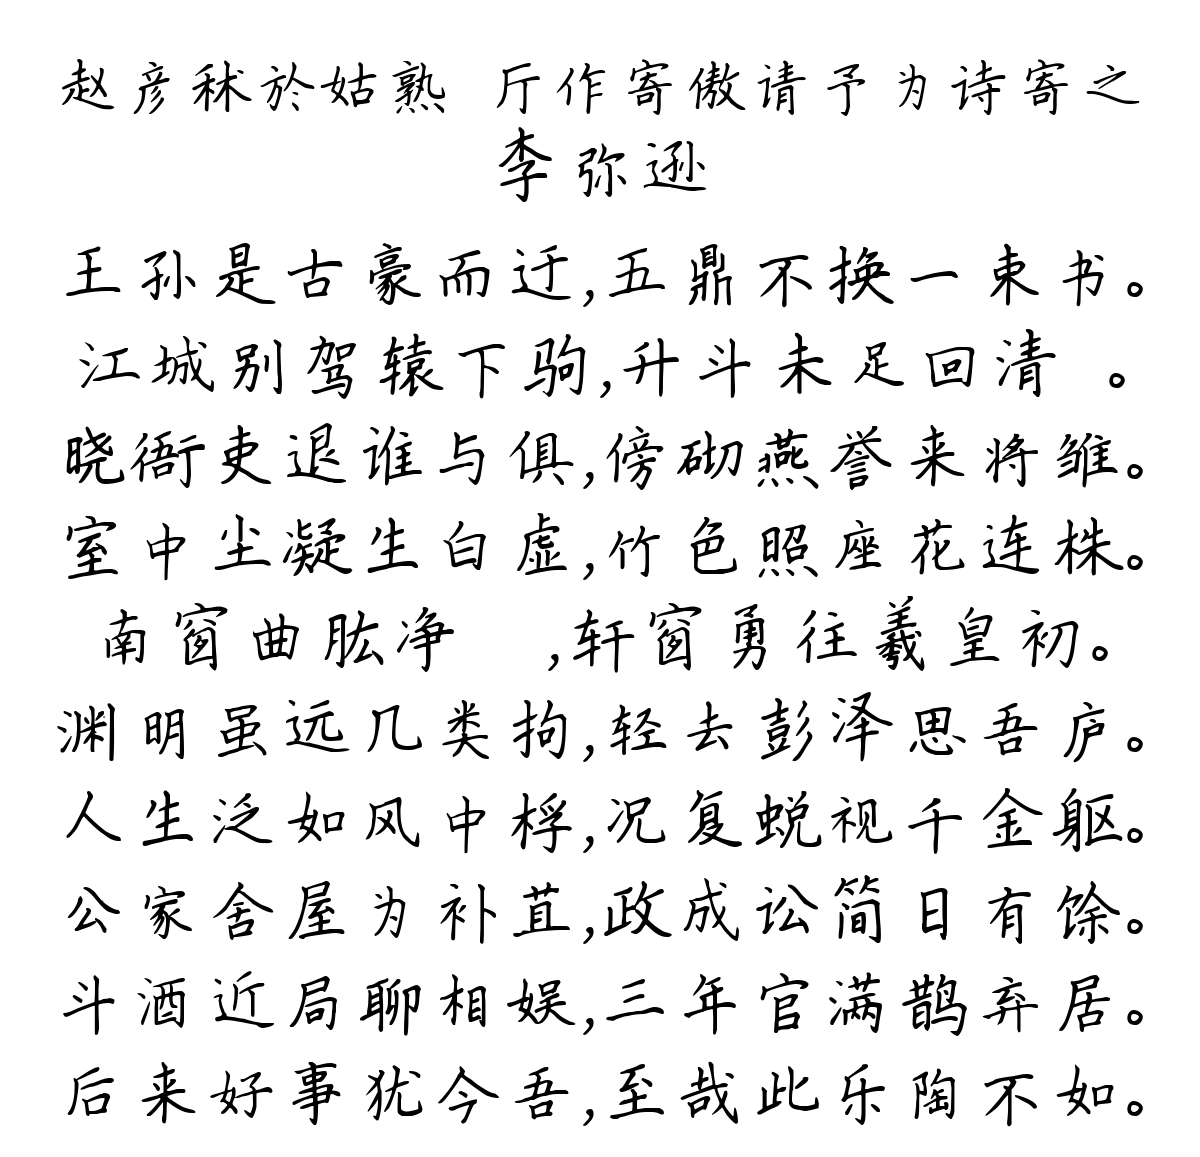 赵彦秫於姑熟 厅作寄傲请予为诗寄之
李弥逊
王孙是古豪而迂,五鼎不换一束书。
江城别驾辕下驹,升斗未足回清 。
晓衙吏退谁与俱,傍砌燕誉来将雏。
室中尘凝生白虚,竹色照座花连株。
南窗曲肱净 ,轩窗勇往羲皇初。
渊明虽远几类拘,轻去彭泽思吾庐。
人生泛如风中桴,况复蜕视千金躯。
公家舍屋为补苴,政成讼简日有馀。
斗酒近局聊相娱,三年官满鹊弃居。
后来好事犹今吾,至哉此乐陶不如。